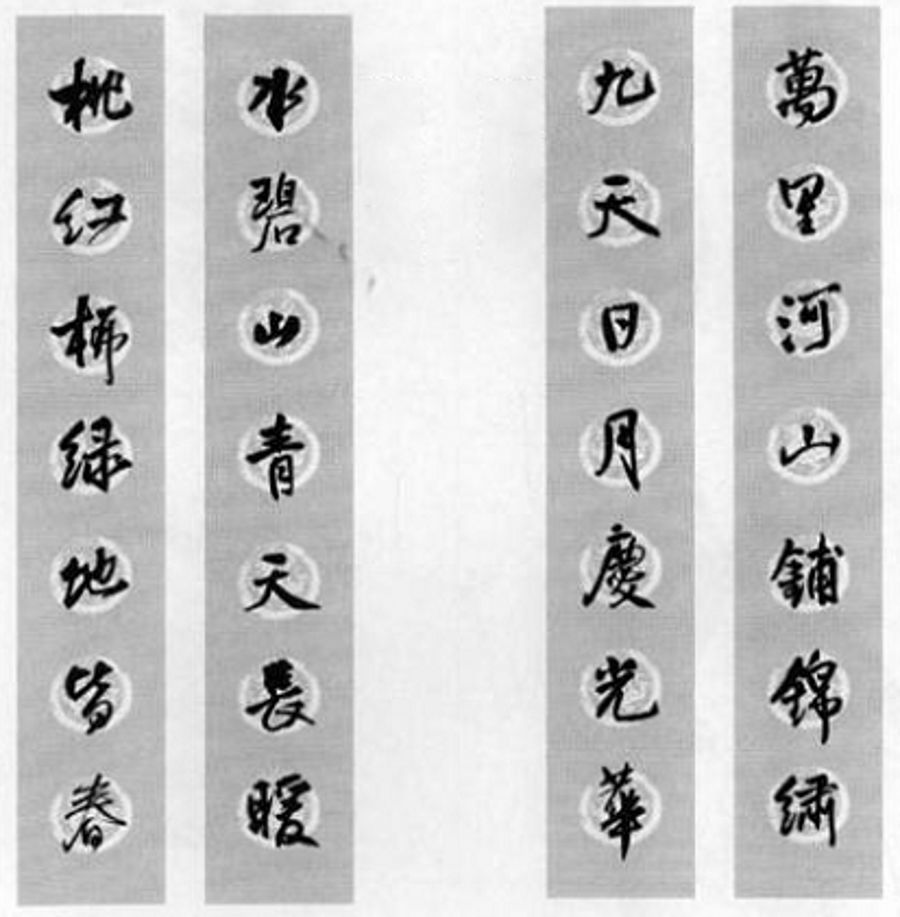 萬里河山鋪錦繡
九天日月慶光華
水碧山青天長暖
桃紅柳綠地皆春